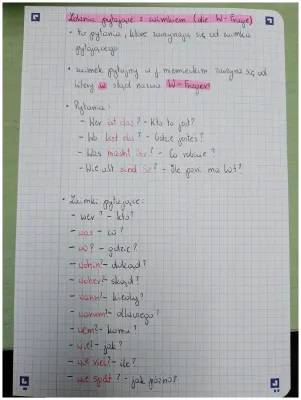 Zdania pytające z zaimkiem (die W-Frage)
• to pytania, które zaczynają się od zaimka
pytającego
• zaimek pytajny w j. niemieckim zaczyna się od
litery w stąd nazwa W-Fragen!
• Pytania:
- Wer ist das? - Kto to jest?
- Wo bist du? - Gdzie jesteś?
- Was macht ihr? - Co robicie?
- Wie alt sind Sie? - Ile pani ma lat?
• Zaimki pytające:
- wer? - kto?
- was - co?
- wo? - gdzie?
- wohin? - dokąd?
- woher? - skąd?
- wann? - kiedy?
- warum? - dlaczego?
- wem? - komu?
- wie? - jak?
- wie viel? - ile?
- wie spät? - jak późno?